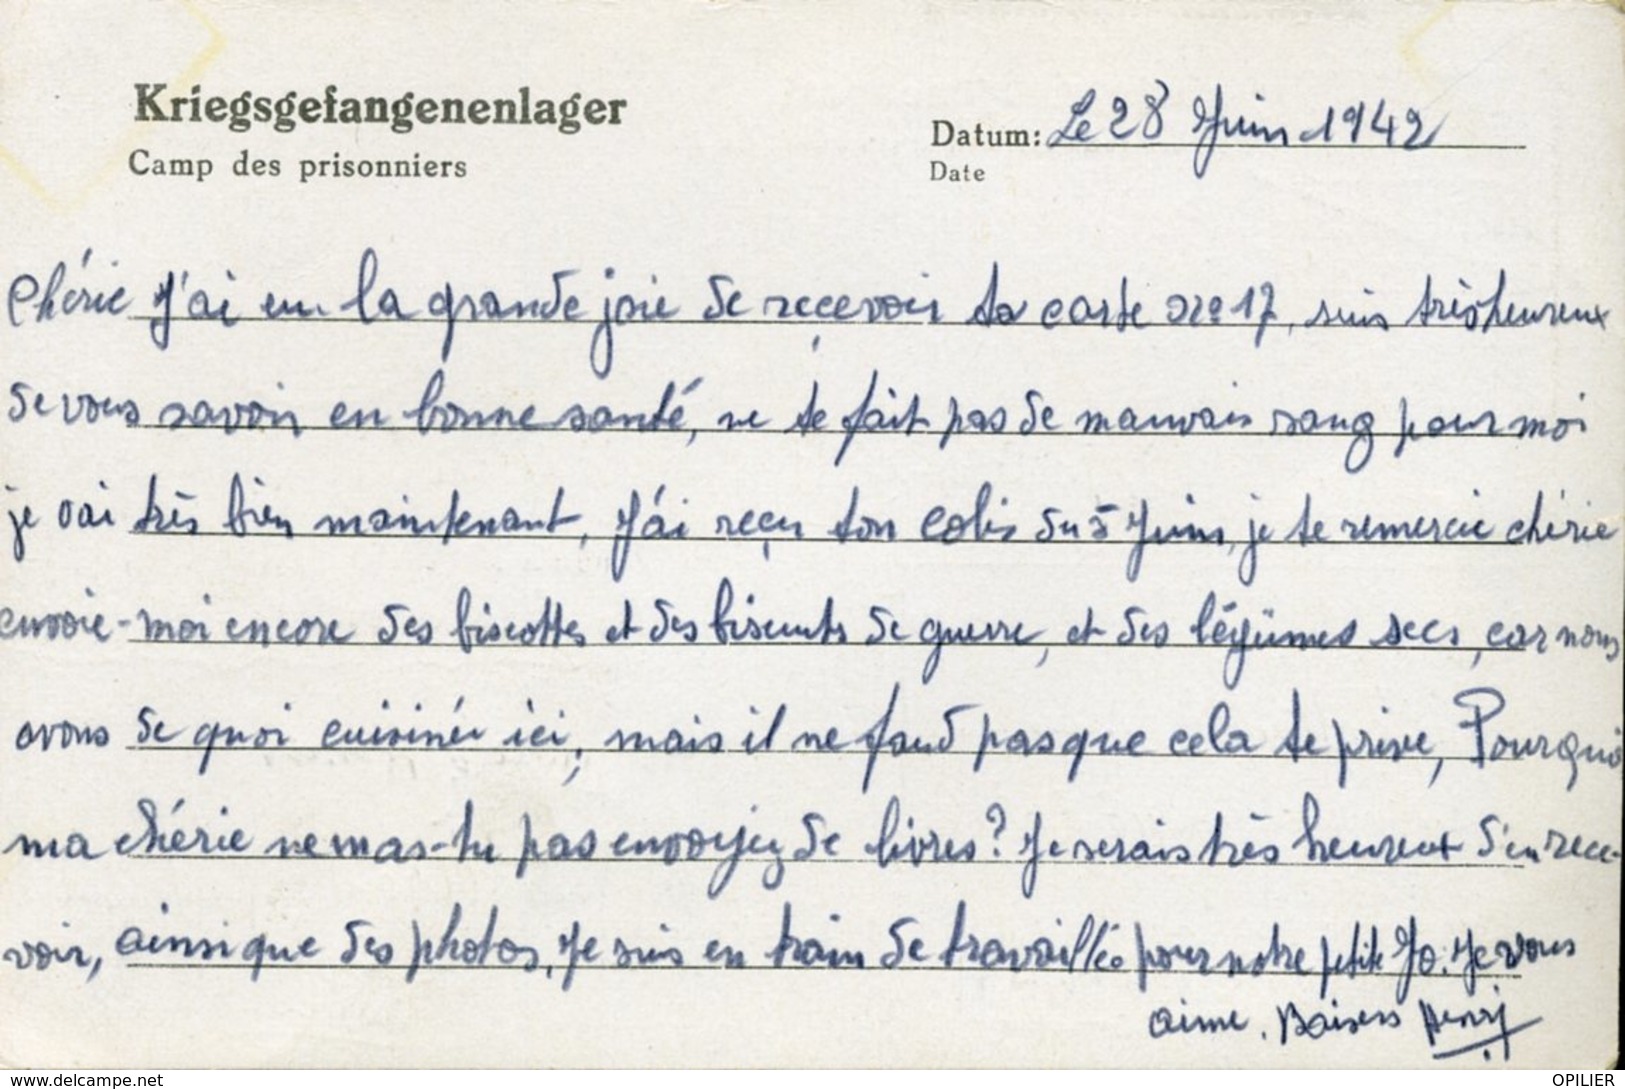 Kriegsgefangenenlager
Camp des prisonniers
Datum: Le 28 Juin 1942
Date
Chérie J'ai eu la grande joie de recevoir ta carte no 17, suis très heureux
de vous savoir en bonne santé, ne te fait pas de mauvais sang pour moi
je vai très bien maintenant, J'ai reçu ton colis du 5 Juin, je te remercie chérie
envoie-moi encore des biscottes et des biscuits de guerre, et des légumes secs, car nous
avons de quoi cuisinér ici, mais il ne faud pas que cela te prive, Pourquoi
ma chérie ne mas-tu pas envoyez de livres? Je serais très heureux d'en rece-
voir, ainsi que des photos, Je suis en train de travaillée pour notre petite Jo. Je vous
aime. Baisers Henri
www.delcampe.net
OPILIER